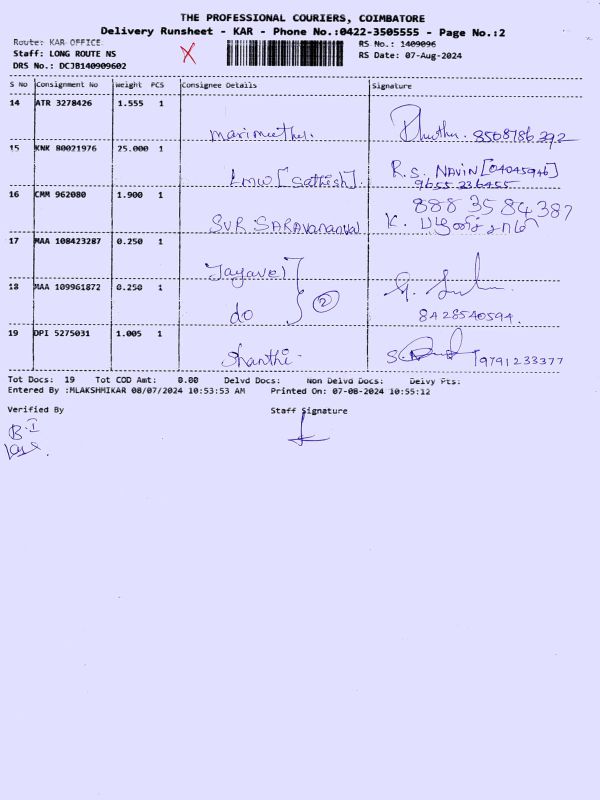 THE PROFESSIONAL COURIERS, COIMBATORE
Delivery Runsheet - KAR - Phone No.:0422-3505555 - Page No.:2
Route: KAR OFFICE
RS No.: 1409096
Staff: LONG ROUTE NS
RS Date: 07-Aug-2024
DRS No.: DCJB140909602
S No Consignment No weight PCS Consignee Details Signature
14 ATR 3278426 1.555 1
Marimuthu. 8508786292
15 KNK 80021976 25.000 1
LMW [Sathish]. R.S. NAVIN [04045946]
9655 236455
16 CMM 962080 1.900 1
888 3584387
SVR SARAVANANA K.
17 MAA 108423287 0.250 1
Jayavel
18 MAA 109961872 0.250 1
do 2
8428540594.
19 DPI 5275031 1.005 1
Shanthi - 9791233377
Tot Docs: 19 Tot COD Amt: 0.00 Delvd Docs: Non Delvd Docs: Delvy Pts:
Entered By :MLAKSHMIKAR 08/07/2024 10:53:53 AM Printed On: 07-08-2024 10:55:12
Verified By Staff Signature